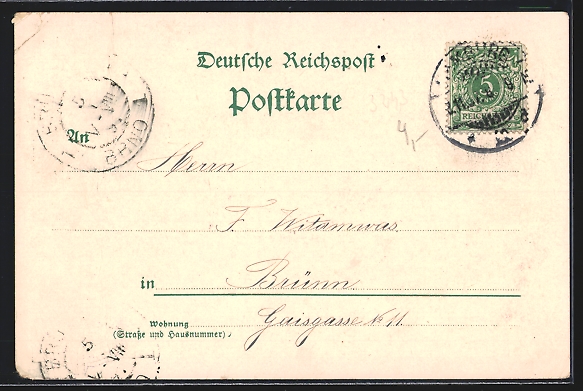 Deutsche Reichspost
Postkarte
An
Herrn
F. Witamwas
in Brünn
Wohnung
(Straße und Hausnummer)
Gaisgasse № 11.
4,-
5
REICHSPOST
BRÜNN